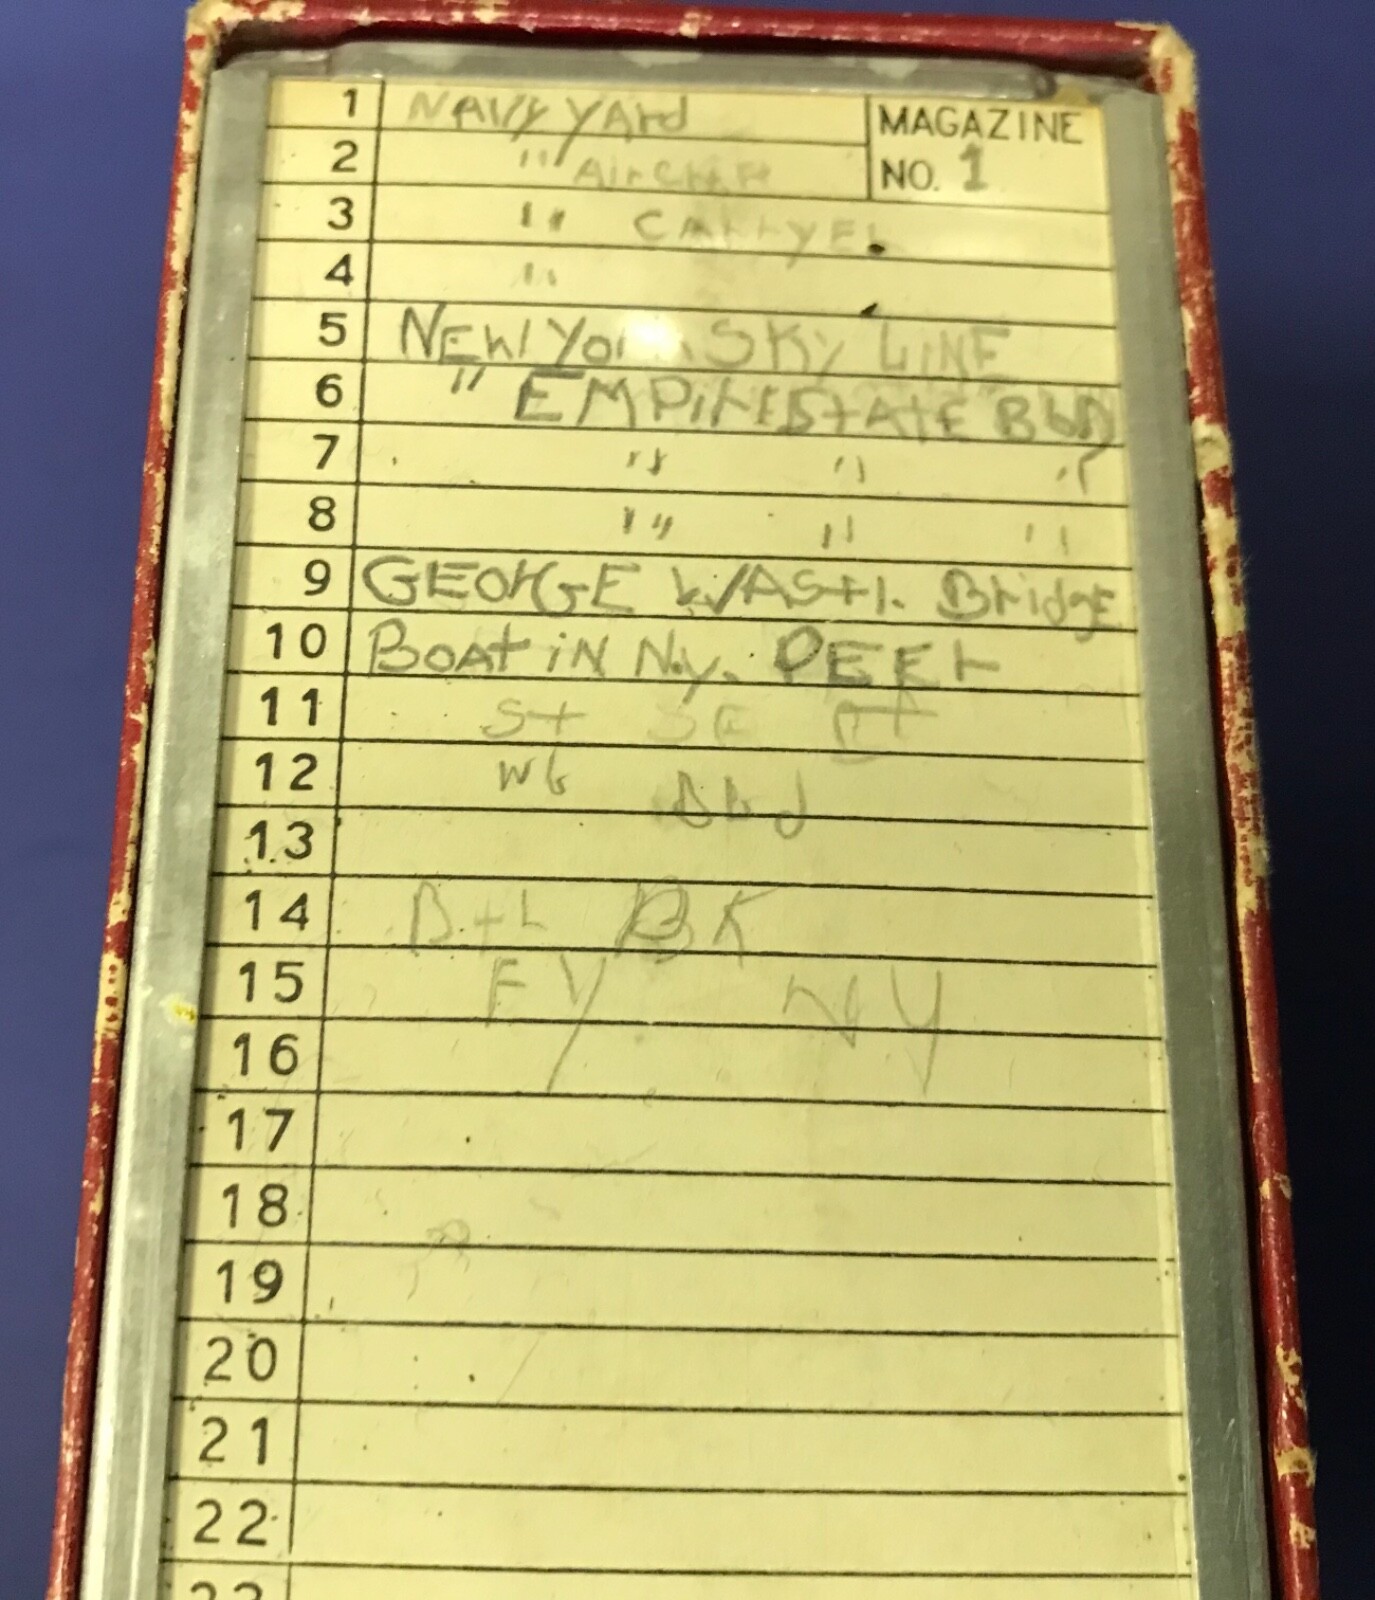 1 NAVY YArd MAGAZINE
2 " AirCrAFt NO. 1
3 " CArryEr
4 "
5 NEW York SKy LiNE
6 " EMPirE StAtE BLD
7 " " "
8 " " "
9 GEOrGE WASH. BridgE
10 BOAt iN N.y. PEEr
11 St SE
12 Wb Bbd
13
14 B+L BK
15 FY NY
16
17
18
19
20
21
22
23